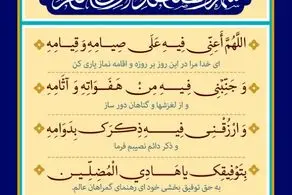 اللّٰهُمَّ أَعِنِّي فِيهِ عَلَى صِيَامِهِ وَ قِيَامِهِ
ای خدا مرا در این روز بر روزه و اقامه نماز یاری کن
وَ جَنِّبْنِي فِيهِ مِنْ هَفَوَاتِهِ وَ آثَامِهِ
و از لغزشها و گناهان دور ساز
وَ ارْزُقْنِي فِيهِ ذِكْرَكَ بِدَوَامِهِ
و ذکر دائم نصیبم فرما
بِتَوْفِيقِكَ يَا هَادِيَ الْمُضِلِّينَ
به حق توفیق بخشی خود ای رهنمای گمراهان عالم